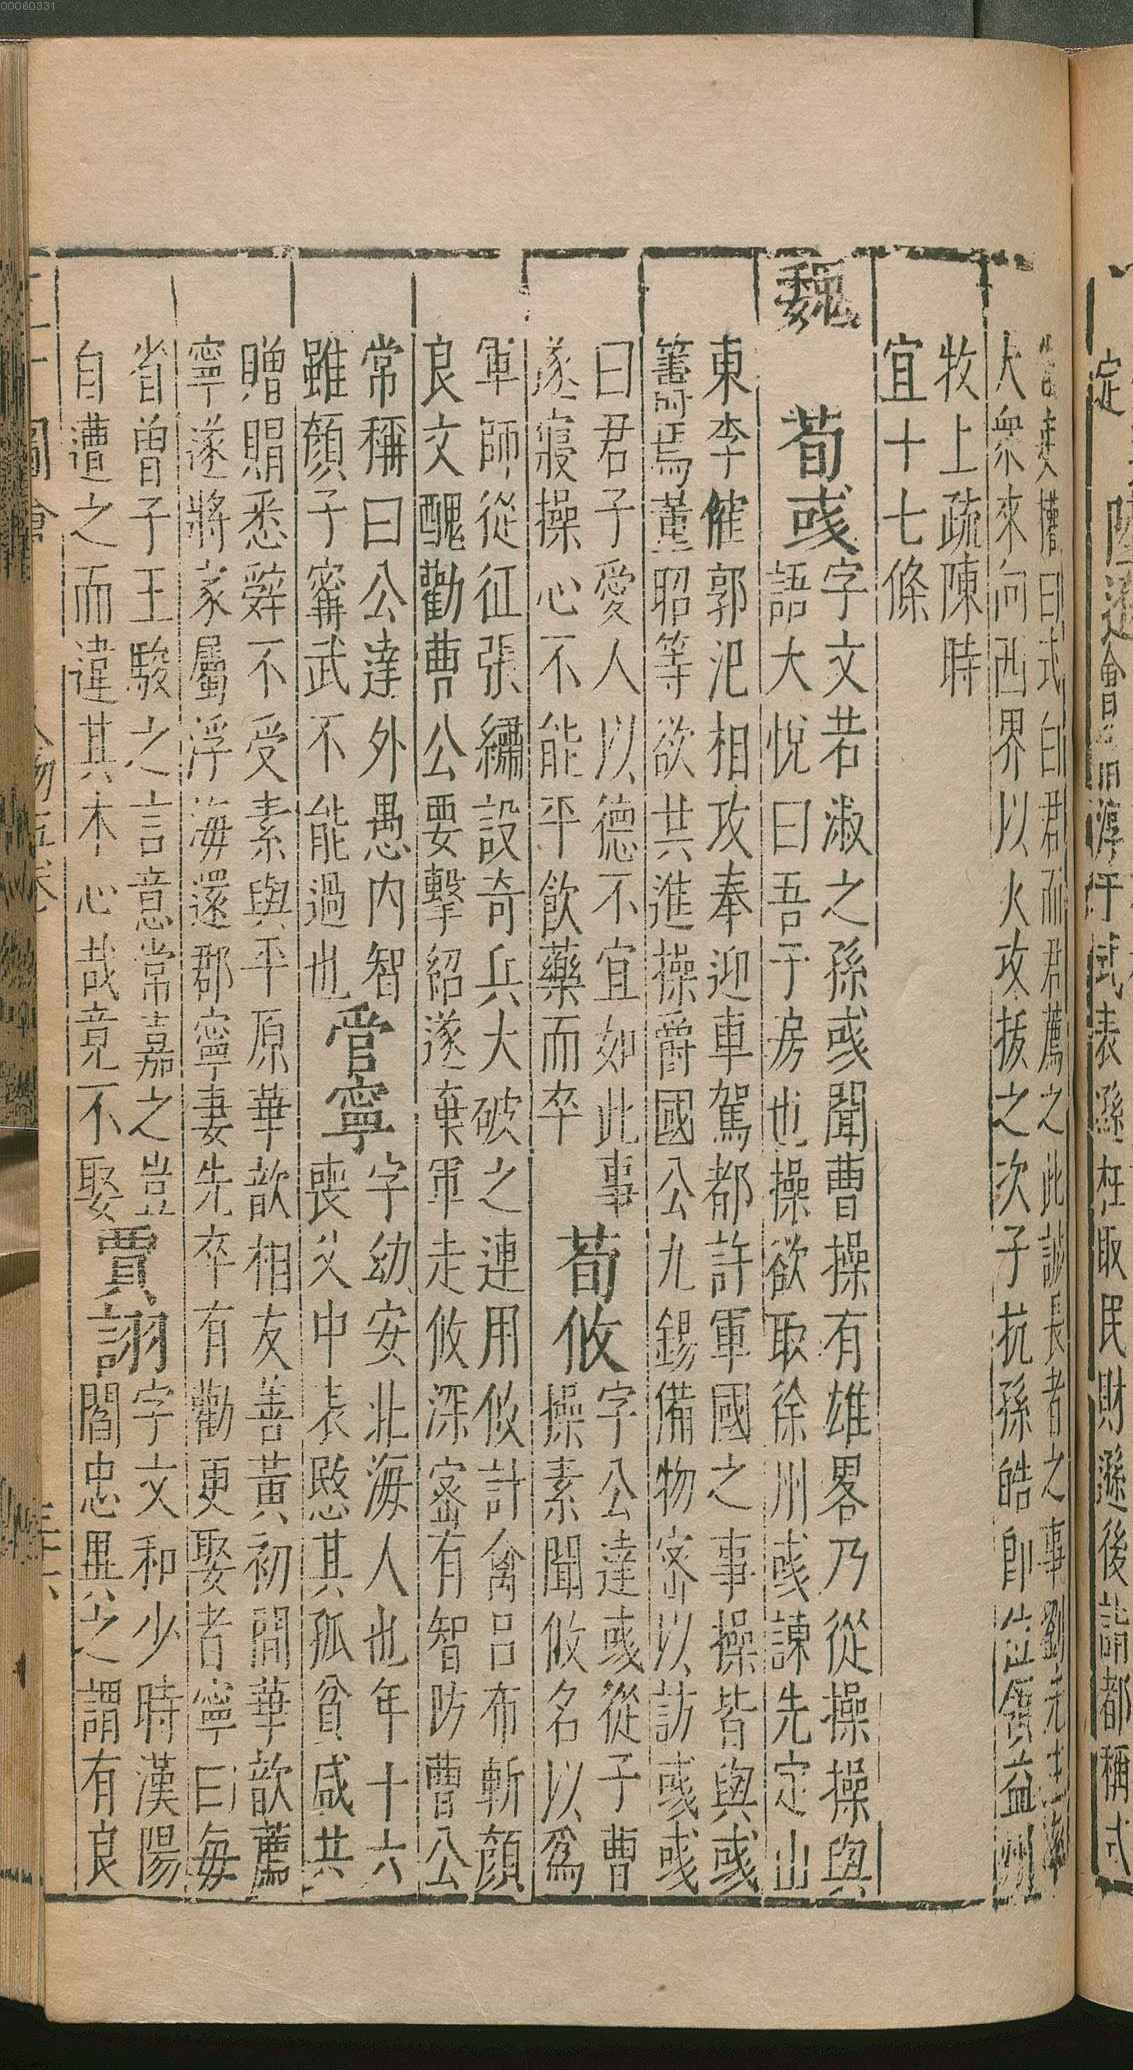 定陸遜會旧淳于式表遜枉取民財遜後詣都稱式
權曰式白君而君薦之此誠長者之事劉先主率
大衆來向西界以火攻拔之次子抗孫皓即位領益州
牧上疏陳時
宜十七條
魏
荀彧字文若淑之孫彧聞曹操有雄畧乃從操操與
語大悅曰吾子房也操欲取徐州彧諫先定山
東李傕郭汜相攻奉迎車駕都許軍國之事操皆與彧
籌焉董昭等欲共進操爵國公九錫備物密以訪彧彧
曰君子愛人以德不宜如此事
遂寢操心不能平飲藥而卒
荀攸字公達彧從子曹
操素聞攸名以爲
軍師從征張繡設奇兵大破之連用攸計禽呂布斬顔
良文醜勸曹公要擊紹遂棄軍走攸深密有智防曹公
常稱曰公達外愚内智
雖顔子甯武不能過也
管寧字幼安北海人也年十六
喪父中表愍其孤貧咸共
贈賵悉辭不受素與平原華歆相友善黃初間華歆薦
寧遂將家屬浮海還郡寧妻先卒有勸更娶者寧曰每
省曾子王駿之言意常嘉之豈
自遭之而違其本心哉竟不娶
賈詡字文和少時漢陽
閻忠異之謂有良
圖會 人物五卷